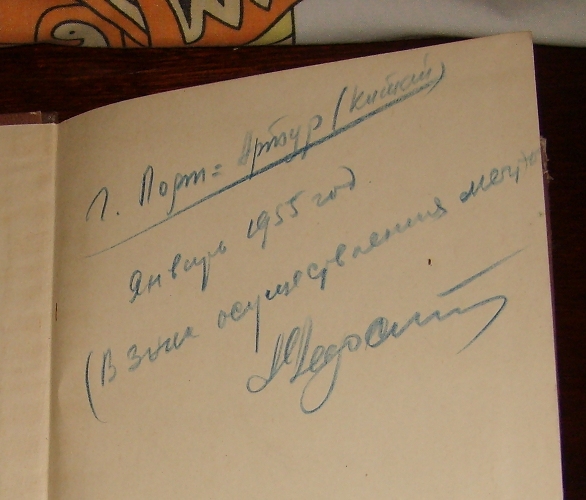 г. Порт= Артур (Китай)
Январь 1955 год.
(В знак осуществления мечты